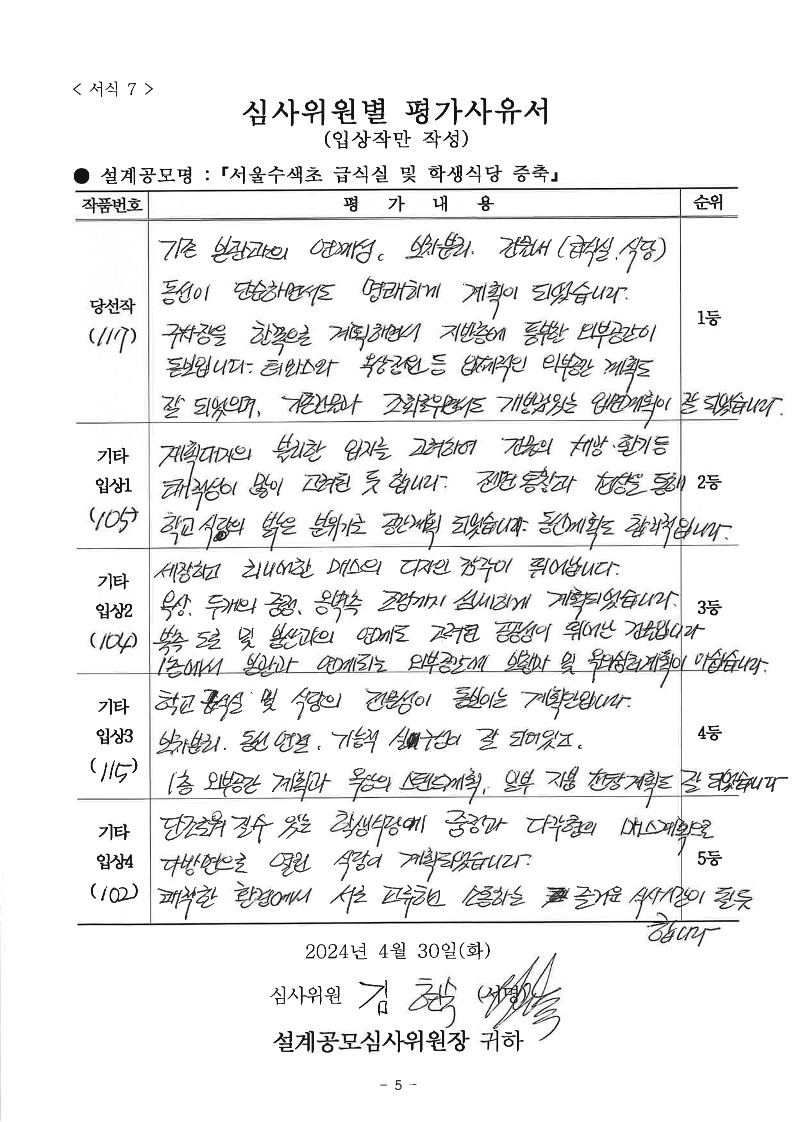 < 서식 7 >
심사위원별 평가사유서
(입상작만 작성)
● 설계공모명 : 『서울수색초 급식실 및 학생식당 증축』
작품번호 평 가 내 용 순위
당선작
(117)
기존 본관과의 연계성, 보차분리. 건물서 (급식실, 식당)
동선이 단순하면서도 명쾌하게 계획이 되었습니다.
주차장을 한쪽으로 계획하면서 지반층에 풍부한 외부공간이
돋보입니다. 테라스와 옥상정원 등 입체적인 외부공간 계획도
잘 되었으며, 기존건물과 조화로우면서도 개방감있는 입면계획이 잘 되었습니다.
1등
기타
입상1
(105)
계획대지의 불리한 입지를 고려하여 건물의 채광·환기등
쾌적성이 많이 고려된 듯 합니다. 전면 통창과 천창을 통해
학교 식당의 밝은 분위기로 공간계획 되었습니다. 동선계획도 합리적입니다.
2등
기타
입상2
(104)
세장하고 리니어한 매스의 디자인 감각이 뛰어납니다.
옥상. 두개의 중정. 옹벽측 조망까지 섬세하게 계획되었습니다.
북측 도로 및 본관과의 연계도 고려된 공공성이 뛰어난 건물입니다
1층에서 본관과 연계되는 외부공간에 보행과 및 계획이 아쉽습니다.
3등
기타
입상3
(115)
학교 급식실 및 식당의 전문성이 돋보이는 계획안입니다.
보차분리. 동선 연결. 기능적 실구성이 잘 되어있고,
1층 외부공간 계획과 옥상의 스탠드계획, 일부 지붕 천창계획도 잘 되었습니다
4등
기타
입상4
(102)
단조로워 질수 있는 학생식당에 중정과 다각형의 매스계획으로
다방면으로 열린 식당이 계획되었습니다.
쾌적한 환경에서 서로 교류하고 소통하는 즐거운 식사시간이 될듯
합니다
5등
2024년 4월 30일(화)
심사위원 김 현숙 (서명)
설계공모심사위원장 귀하
- 5 -